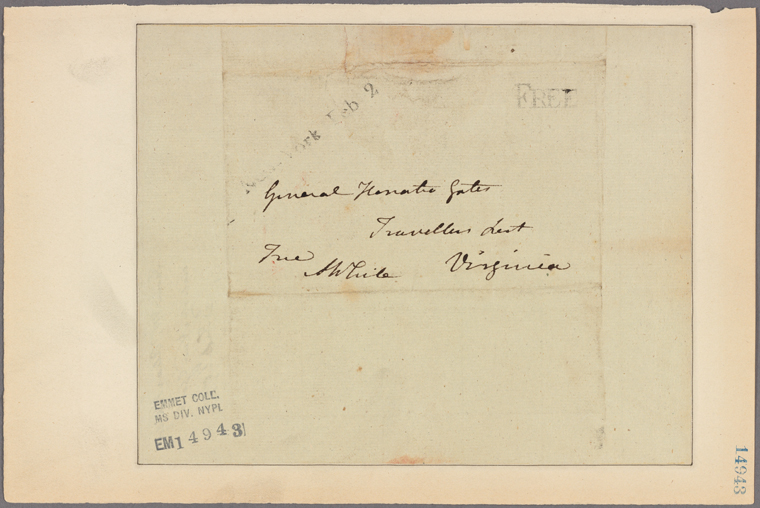 New York Feb 2
FREE
General Horatio Gates
Travellers Rest
Free
AWhite
Virginia
EMMET COLL.
MS DIV. NYPL
EM14943
14943